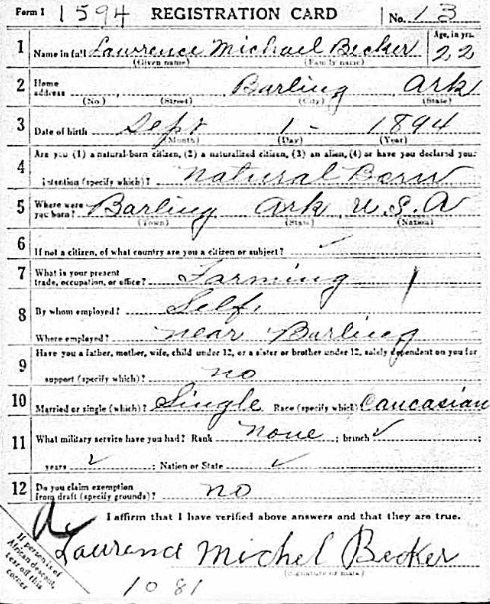 Form 1 1594 REGISTRATION CARD No. 13
1 Name in full Lawrence Michael Becker Age, in yrs. 22
(Given name) (Family name)
2 Home address Barling Ark
(No.) (Street) (City) (State)
3 Date of birth Sept 1 - 1894
(Month) (Day) (Year)
4 Are you (1) a natural-born citizen, (2) a naturalized citizen, (3) an alien, (4) or have you declared your
intention (specify which)? Natural Born
5 Where were you born? Barling Ark U.S.A
(Town) (State) (Nation)
6 If not a citizen, of what country are you a citizen or subject? ✓
7 What is your present trade, occupation, or office? Farming
8 By whom employed? Self.
Where employed? near Barling
9 Have you a father, mother, wife, child under 12, or a sister or brother under 12, solely dependent on you for
support (specify which)? no
10 Married or single (which)? Single Race (specify which) Caucasian
11 What military service have you had? Rank none ; branch ✓ ;
years ✓ ; Nation or State ✓
12 Do you claim exemption from draft (specify grounds)? no
I affirm that I have verified above answers and that they are true.
If person is of
African descent,
tear off this
corner
Lawrence Michel Becker
1081